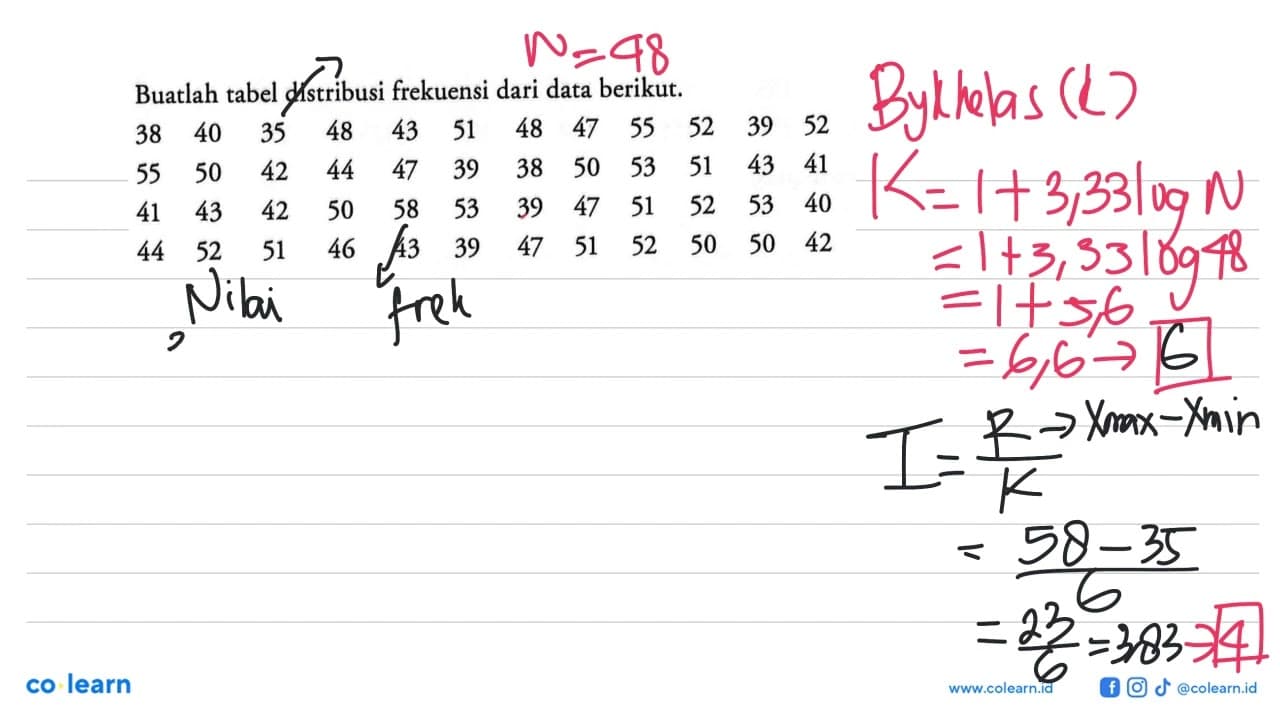 N=48
Buatlah tabel distribusi frekuensi dari data berikut.
38 40 35 48 43 51 48 47 55 52 39 52
55 50 42 44 47 39 38 50 53 51 43 41
41 43 42 50 58 53 39 47 51 52 53 40
44 52 51 46 43 39 47 51 52 50 50 42
Nilai frek
Byk kelas (k)
K = 1 + 3,33 log N
= 1 + 3,33 log 48
= 1 + 5,6
= 6,6 → 6
I = R/K → Xmax - Xmin
= 58 - 35 / 6
= 23/6 = 3,83 → 4
co learn
www.colearn.id @colearn.id